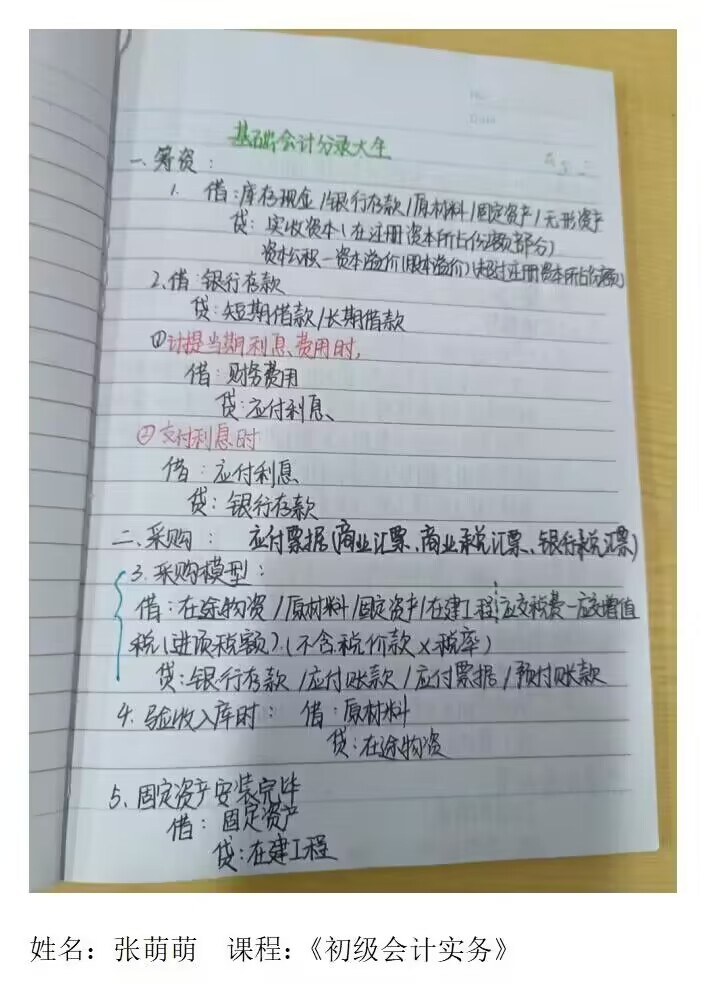 基础会计分录大全
一、筹资：
1. 借：库存现金/银行存款/原材料/固定资产/无形资产
贷：实收资本(在注册资本所占份额部分)
资本公积—资本溢价(股本溢价)(超过注册资本所占份额)
2、借：银行存款
贷：短期借款/长期借款
①计提当期利息、费用时，
借：财务费用
贷：应付利息、
②支付利息时
借：应付利息
贷：银行存款
二、采购： 应付票据(商业汇票、商业承兑汇票、银行承兑汇票)
3、采购模型：
借：在途物资/原材料/固定资产/在建工程 应交税费—应交增值
税(进项税额)(不含税价款×税率)
贷：银行存款/应付账款/应付票据/预付账款
4. 验收入库时： 借：原材料
贷：在途物资
5、固定资产安装完毕
借：固定资产
贷：在建工程
姓名：张萌萌 课程：《初级会计实务》